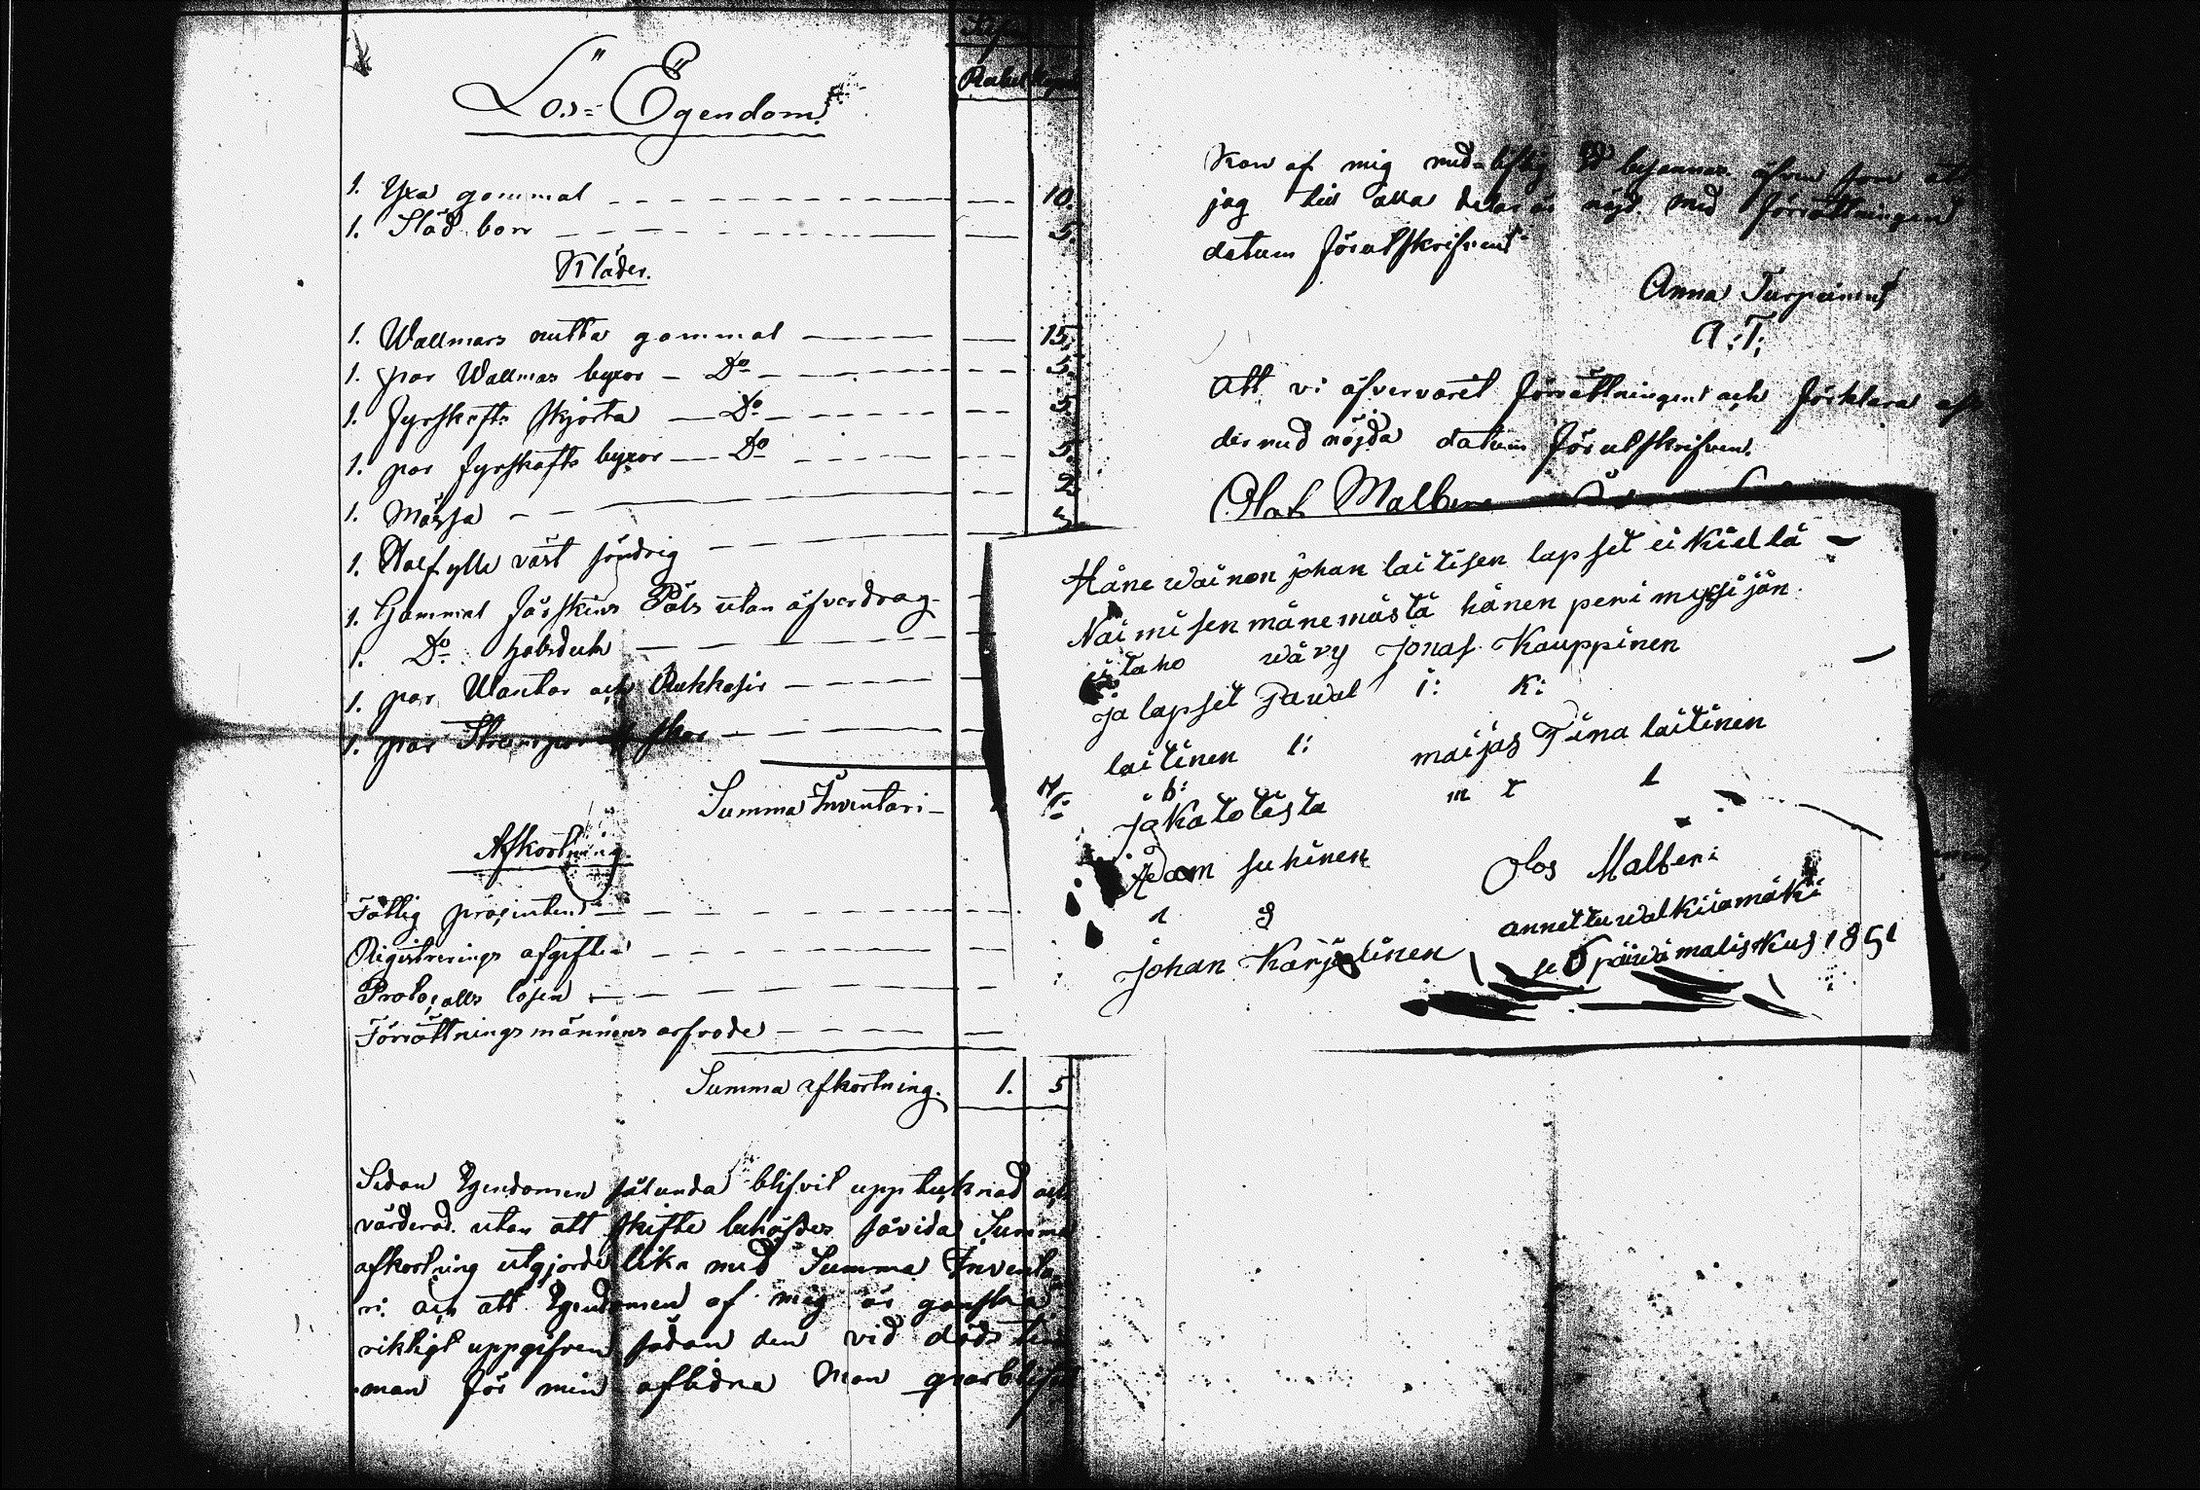 Lös Egendom.
Rubel
1. Yxa gammal 10.
1. Städ borr 5.
Kläder.
1. Wallmars mutta gammal 15.
1. par Wallmas byxor Do 5.
1. fyrskafts skjorta Do 5.
1. par fyrskafts byxor Do 5.
1. Mössa 2.
1. Halfylle väst söndrig
1. Gammal fårskins Päls utan öfverdrag
1. Do halsduk
1. par Wantar och Rukkasir
1. par Strumpor skor
Summa Inventari
Afkortning.
Fattig procenten
Registrerings afgiften
Protocolls lösen
Förrättningsmännens arfvode
Summa afkortning. 1. 5
Sedan Egendomen sålunda blifvit upptecknad och
värderad utan att skifte behöfdes såvida Summa
afkortning utgjorde lika med Summa Inventa
ri och att Egendomen af mig är ganska
riktigt uppgifven sådan den vid döds tim
man för min aflidna Man qvarblifvit
af mig med Ed
jag till alla delar är nöjd med förrättningen
datum förutskrifvent
Anna Turpeinen
A. T.
Att vi öfvervarit förrättningent och förklara oss
der med nöjda datum förutskrifven.
Olaf Malben
wainon johan laitisen lapset ei kiellä
Naimisen mänemästä hänen perimysijän
wävy Jonas Kauppinen
ja lapset Pawal i: k:
laitinen l: maijas Tina laitinen
m t l
jakatotista
Adam suhinen Olos Malberi
a s annettu walkiiamäki
Johan Karjalinen se 6 päiwä maliskus 1851